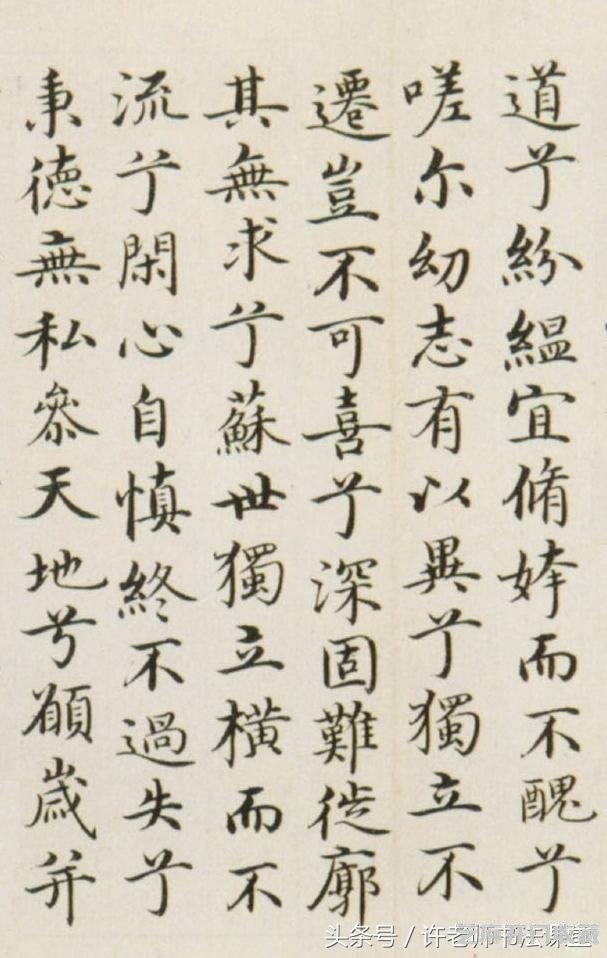 道兮紛緼宜脩姱而不醜兮
嗟尔幼志有以異兮獨立不
遷豈不可喜兮深固難徙廓
其無求兮蘇世獨立横而不
流兮閑心自慎終不過失兮
秉德無私叅天地兮願歲并
头条号 / 许老师书法课堂